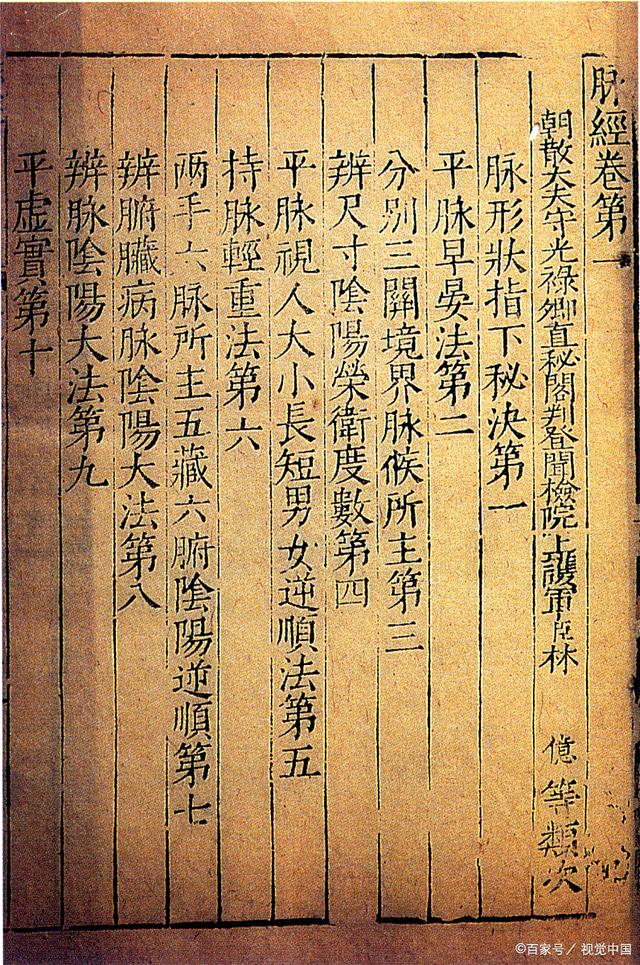 脉經卷第一
朝散大夫守光祿卿直秘閣判登聞檢院上護軍臣林億等類次
脉形狀指下秘決第一
平脉早晏法第二
分别三關境界脉候所主第三
辨尺寸陰陽榮衛度數第四
平脉視人大小長短男女逆順法第五
持脉輕重法第六
兩手六脉所主五藏六腑陰陽逆順第七
辨腑臟病脉陰陽大法第八
辨脉陰陽大法第九
平虛實第十
©百家号／视觉中国